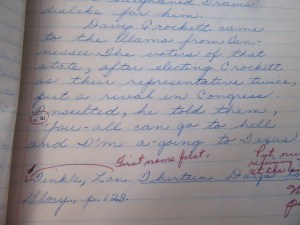 dislike for him.
Davy Crockett came
to the Alamo from Ten-
nessee. The voters of that
state, after electing Crockett
as their representative twice,
put a rival in Congress.
Insulted, he told them,
"You-all can go to hell
and I'm a-going to Texas
First name first.
Put
Tinkle, Lon. Thirteen Days
at the
Glory, p. 123.